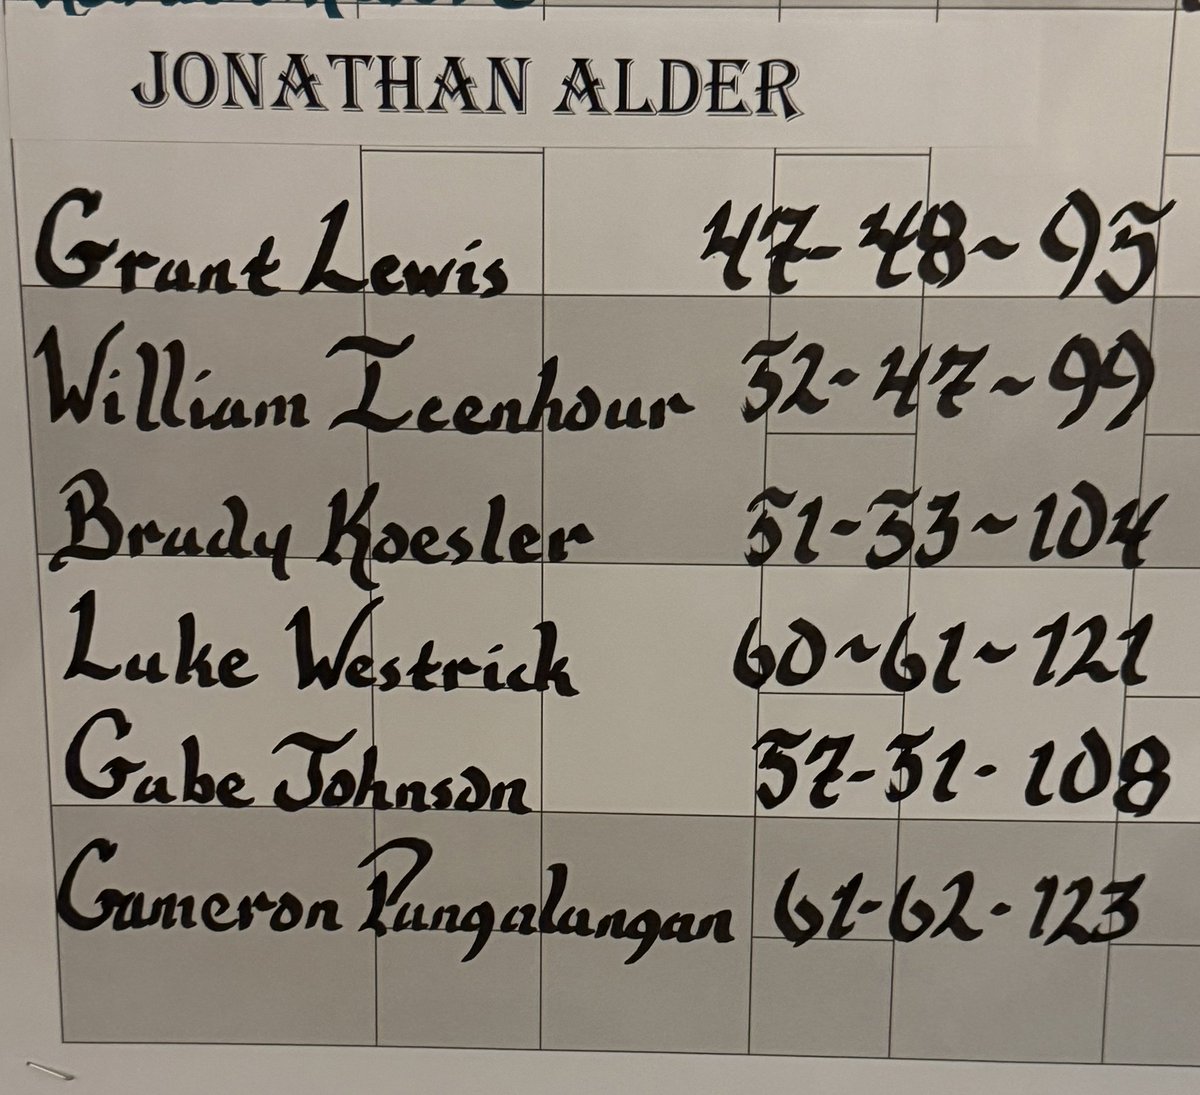 JONATHAN ALDER
Grant Lewis 47-48~95
William Icenhour 52~47~99
Brady Koesler 51-53~104
Luke Westrick 60~61~121
Gabe Johnson 57-51-108
Cameron Pangalangan 61-62-123